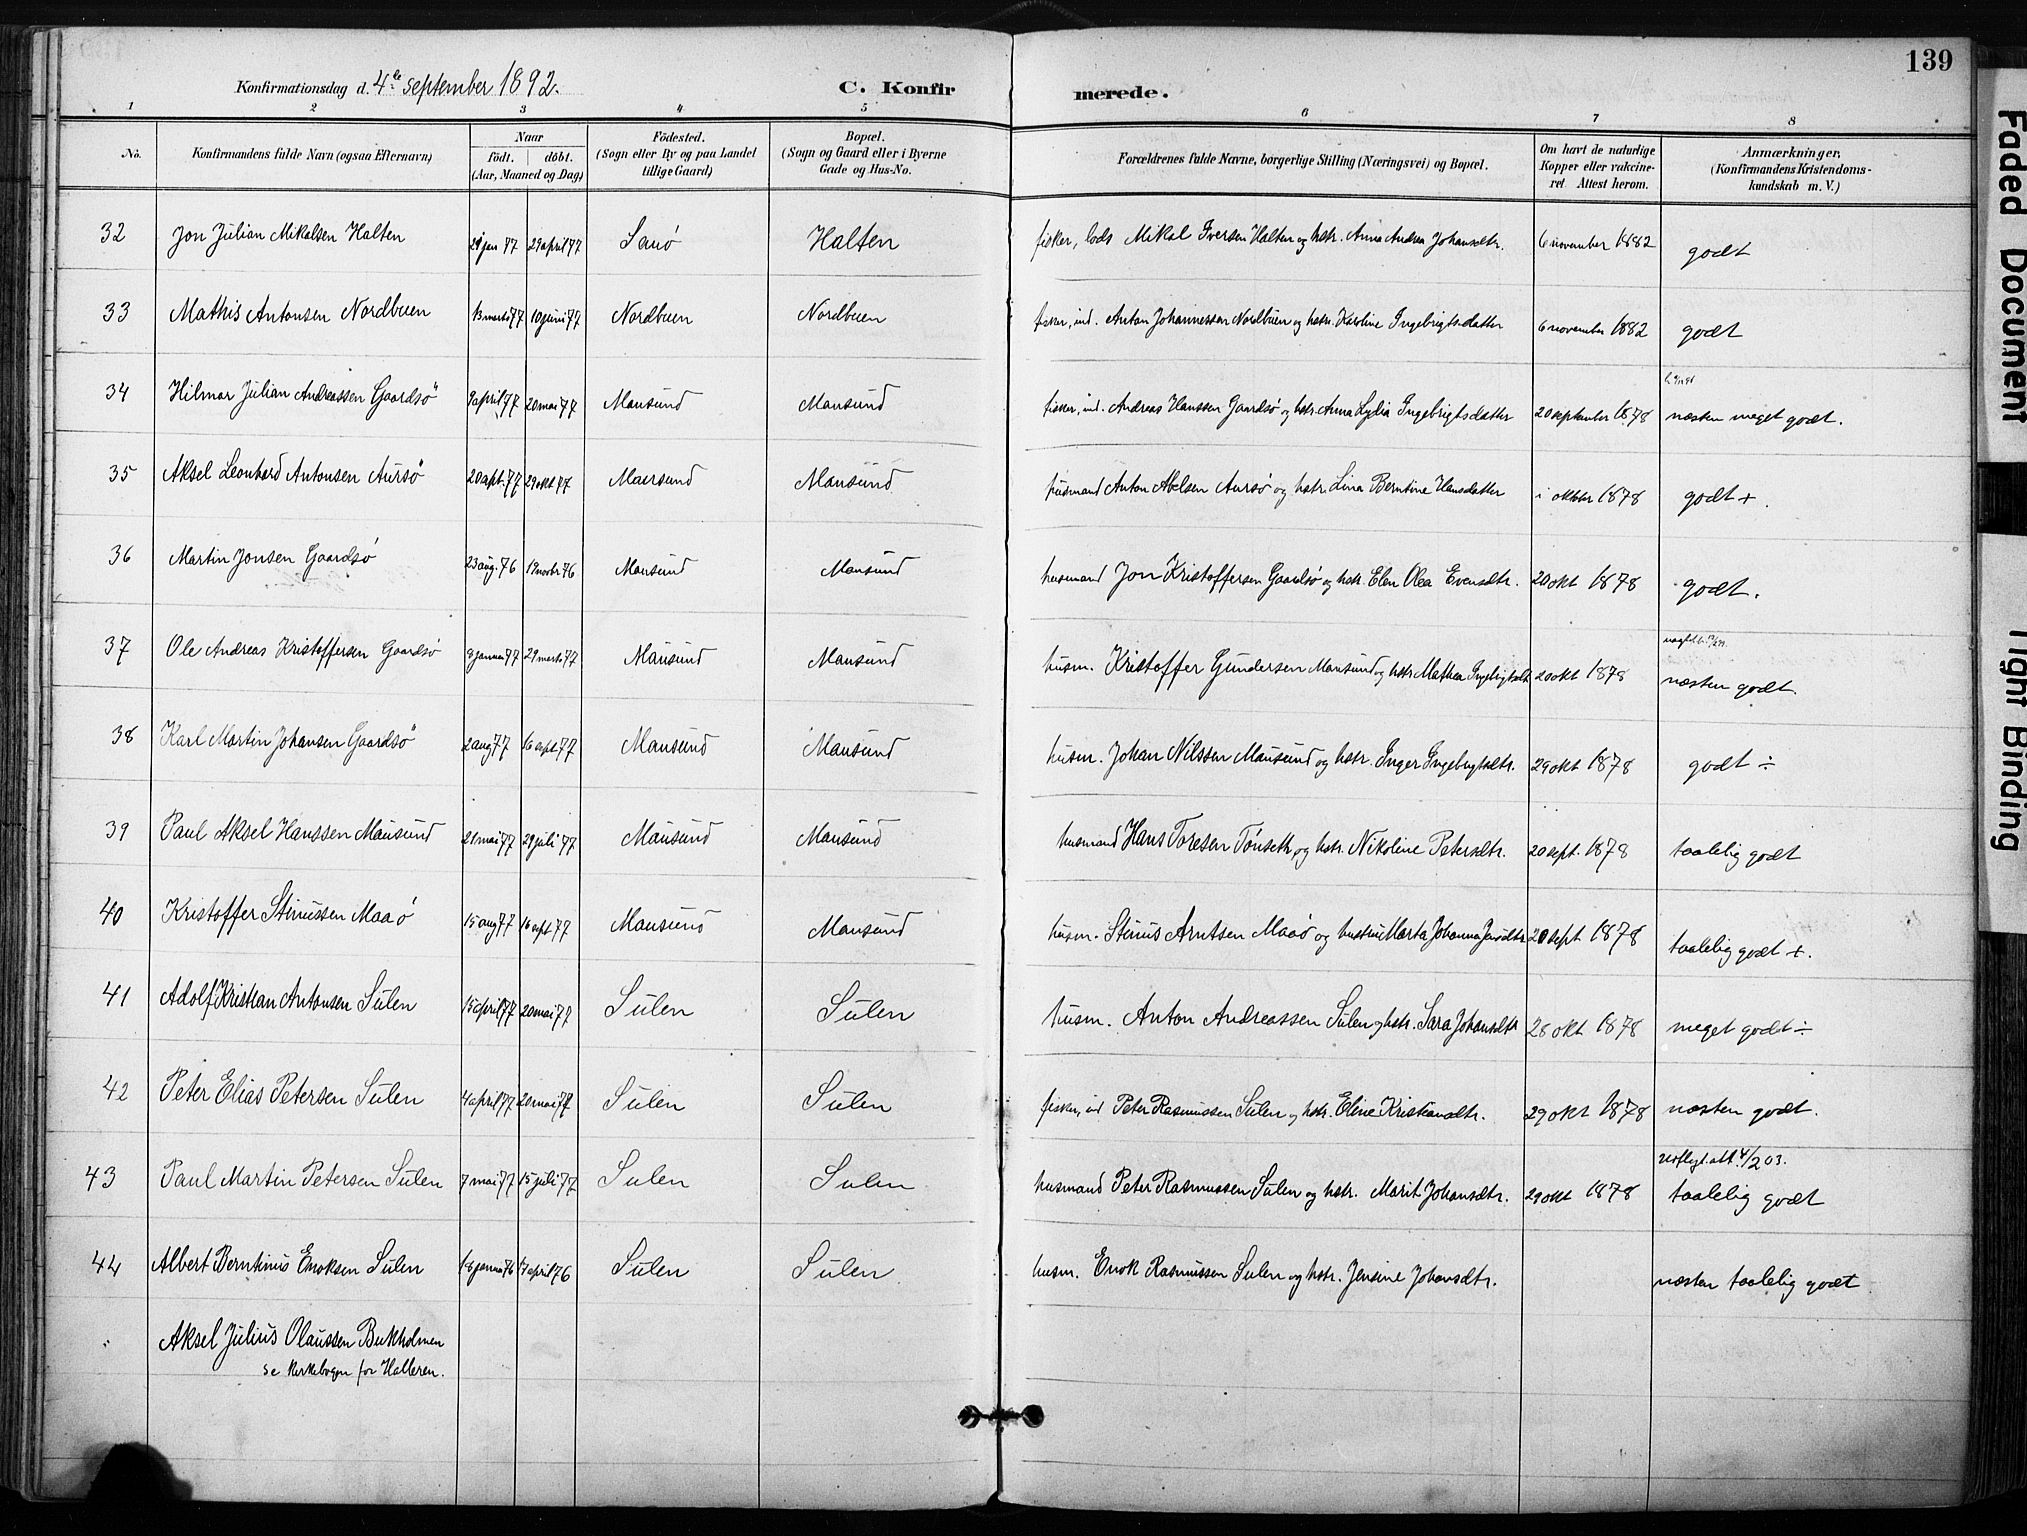 139
Konfirmationsdag d. 4de september 1892.
C. Konfirmerede.
1 2 3 4 5 6 7 8
No.
Konfirmandens fulde Navn (ogsaa Efternavn)
Naar
födt. | döbt.
(Aar, Maaned og Dag)
Födested.
(Sogn eller By og paa Landet
tillige Gaard)
Bopæl.
(Sogn og Gaard eller i Byerne
Gade og Hus-No.
Forældrenes fulde Navne, borgerlige Stilling (Næringsvei) og Bopæl.
Om havt de naturlige
Kopper eller vakcine-
ret. Attest herom.
Anmærkninger,
(Konfirmandens Kristendoms-
kundskab m. V.)
32 Jon Julian Mikalsen Halten jan 77 29 april 77 Sauö Halten fisker, lods Mikal Iversen Halten og hstr. Anna Andrea Johansdtr. 6 november 1882 godt
33 Mathis Antonsen Nordbuen 13 marts 77 10 juni 77 Nordbuen Nordbuen fisker, ind. Anton Johannessen Nordbuen og hstr. Karoline Ingebrigtsdatter 6 november 1882 godt
34 Hilmar Julian Andreassen Gaardsö 9 april 77 20 mai 77 Mausund Mausund fisker, ind. Andreas Hanssen Gaardsö og hstr. Anna Lydia Ingebrigtsdatter 20 september 1878 næsten meget godt.
35 Aksel Leonhard Antonsen Aursö 20 spt. 77 29 okt 77 Mausund Mausund husmand Anton Abelsen Aursö og hstr. Lina Berntine Hansdatter i oktbr 1878 godt +.
36 Martin Jonsen Gaardsö 23 aug. 76 19 novbr 76 Mausund Mausund husmand Jon Kristoffersen Gaardsö og hstr. Elen Olea Evensdtr. 20 okt 1878 godt.
37 Ole Andreas Kristoffersen Gaardsö 9 januar 77 29 marts 77 Mausund Mausund husm. Kristoffer Gundersen Mausund og hstr Mathea Ingebrigtsdt 20 okt 1878 næsten godt.
38 Karl Martin Johansen Gaardsö 2 aug 77 16 sept 77 Mausund Mausund husm. Johan Nilssen Mausund og hstr. Inger Ingebrigtsdtr. 29 okt 1878 godt ÷
39 Paul Aksel Hanssen Mausund 21 mai 77 29 juli 77 Mausund Mausund husmand Hans Toresen Tönseth og hstr. Nikoline Petersdtr. 20 sept. 1878 taalelig godt
40 Kristoffer Stinussen Maaö 15 aug 77 16 sept 77 Mausund Mausund husm. Stinus Arntsen Maaö og hustru Marta Johanna 20 sept 1878 taalelig godt +.
41 Adolf Kristian Antonsen Sulen 15 april 77 20 mai 77 Sulen Sulen husm. Anton Andreassen Sulen og hstr. Sara Johansdtr 28 okt 1878 meget godt ÷
42 Peter Elias Petersen Sulen 4 april 77 20 mai 77 Sulen Sulen fisker, ind Peter Rasmussen Sulen og hstr. Eline Kristiansdtr. 29 okt 1878 næsten godt.
43 Paul Martin Petersen Sulen 7 mai 77 15 juli 77 Sulen Sulen husmand Peter Rasmussen Sulen og hstr. Marit Johansdtr. 29 okt 1878 udflyt. att. 4/2 03. taalelig godt
44 Albert Berntinus Enoksen Sulen 76 17 april 76 Sulen Sulen husm. Enok Rasmussen Sulen og hstr. Jensine Johansdtr. næsten taalelig godt
Aksel Julius Olaussen Bukholmen
se kirkebogen for Halleren.
Faded Document
Tight Binding